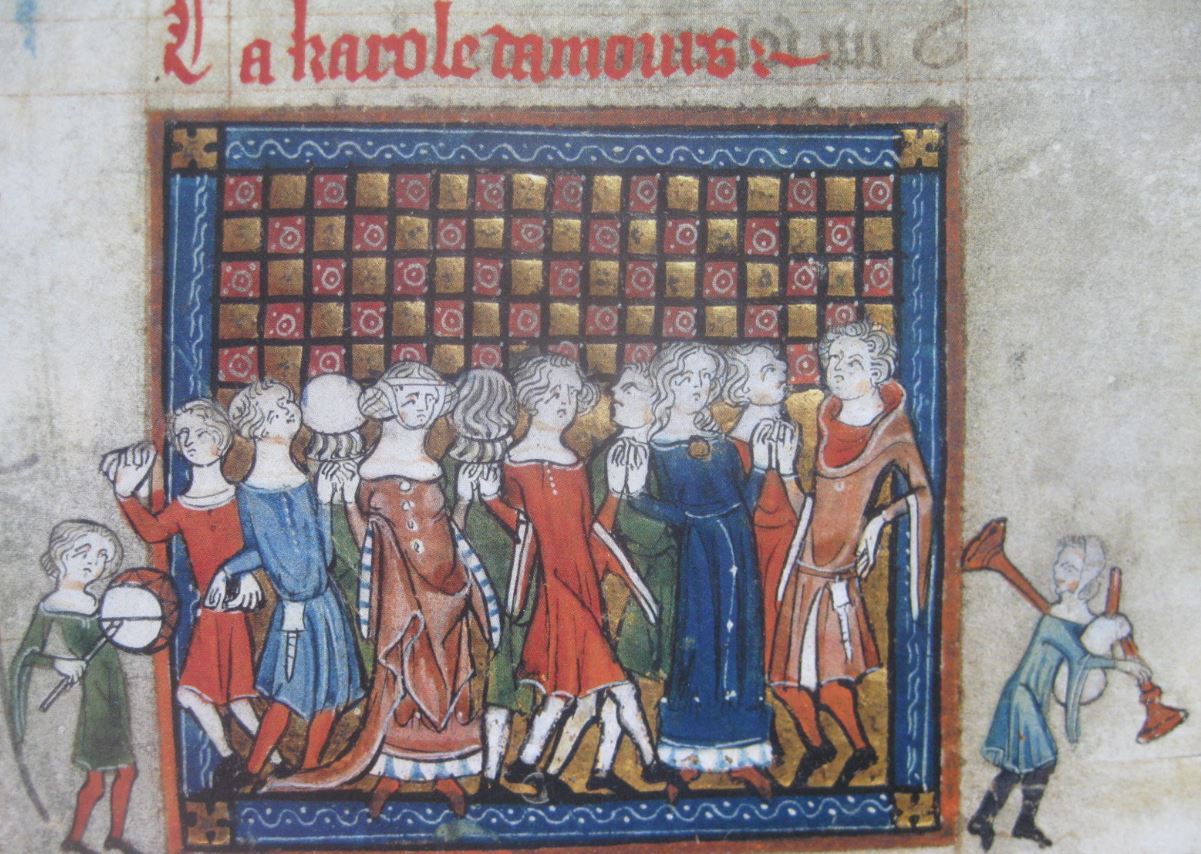 La karole damours